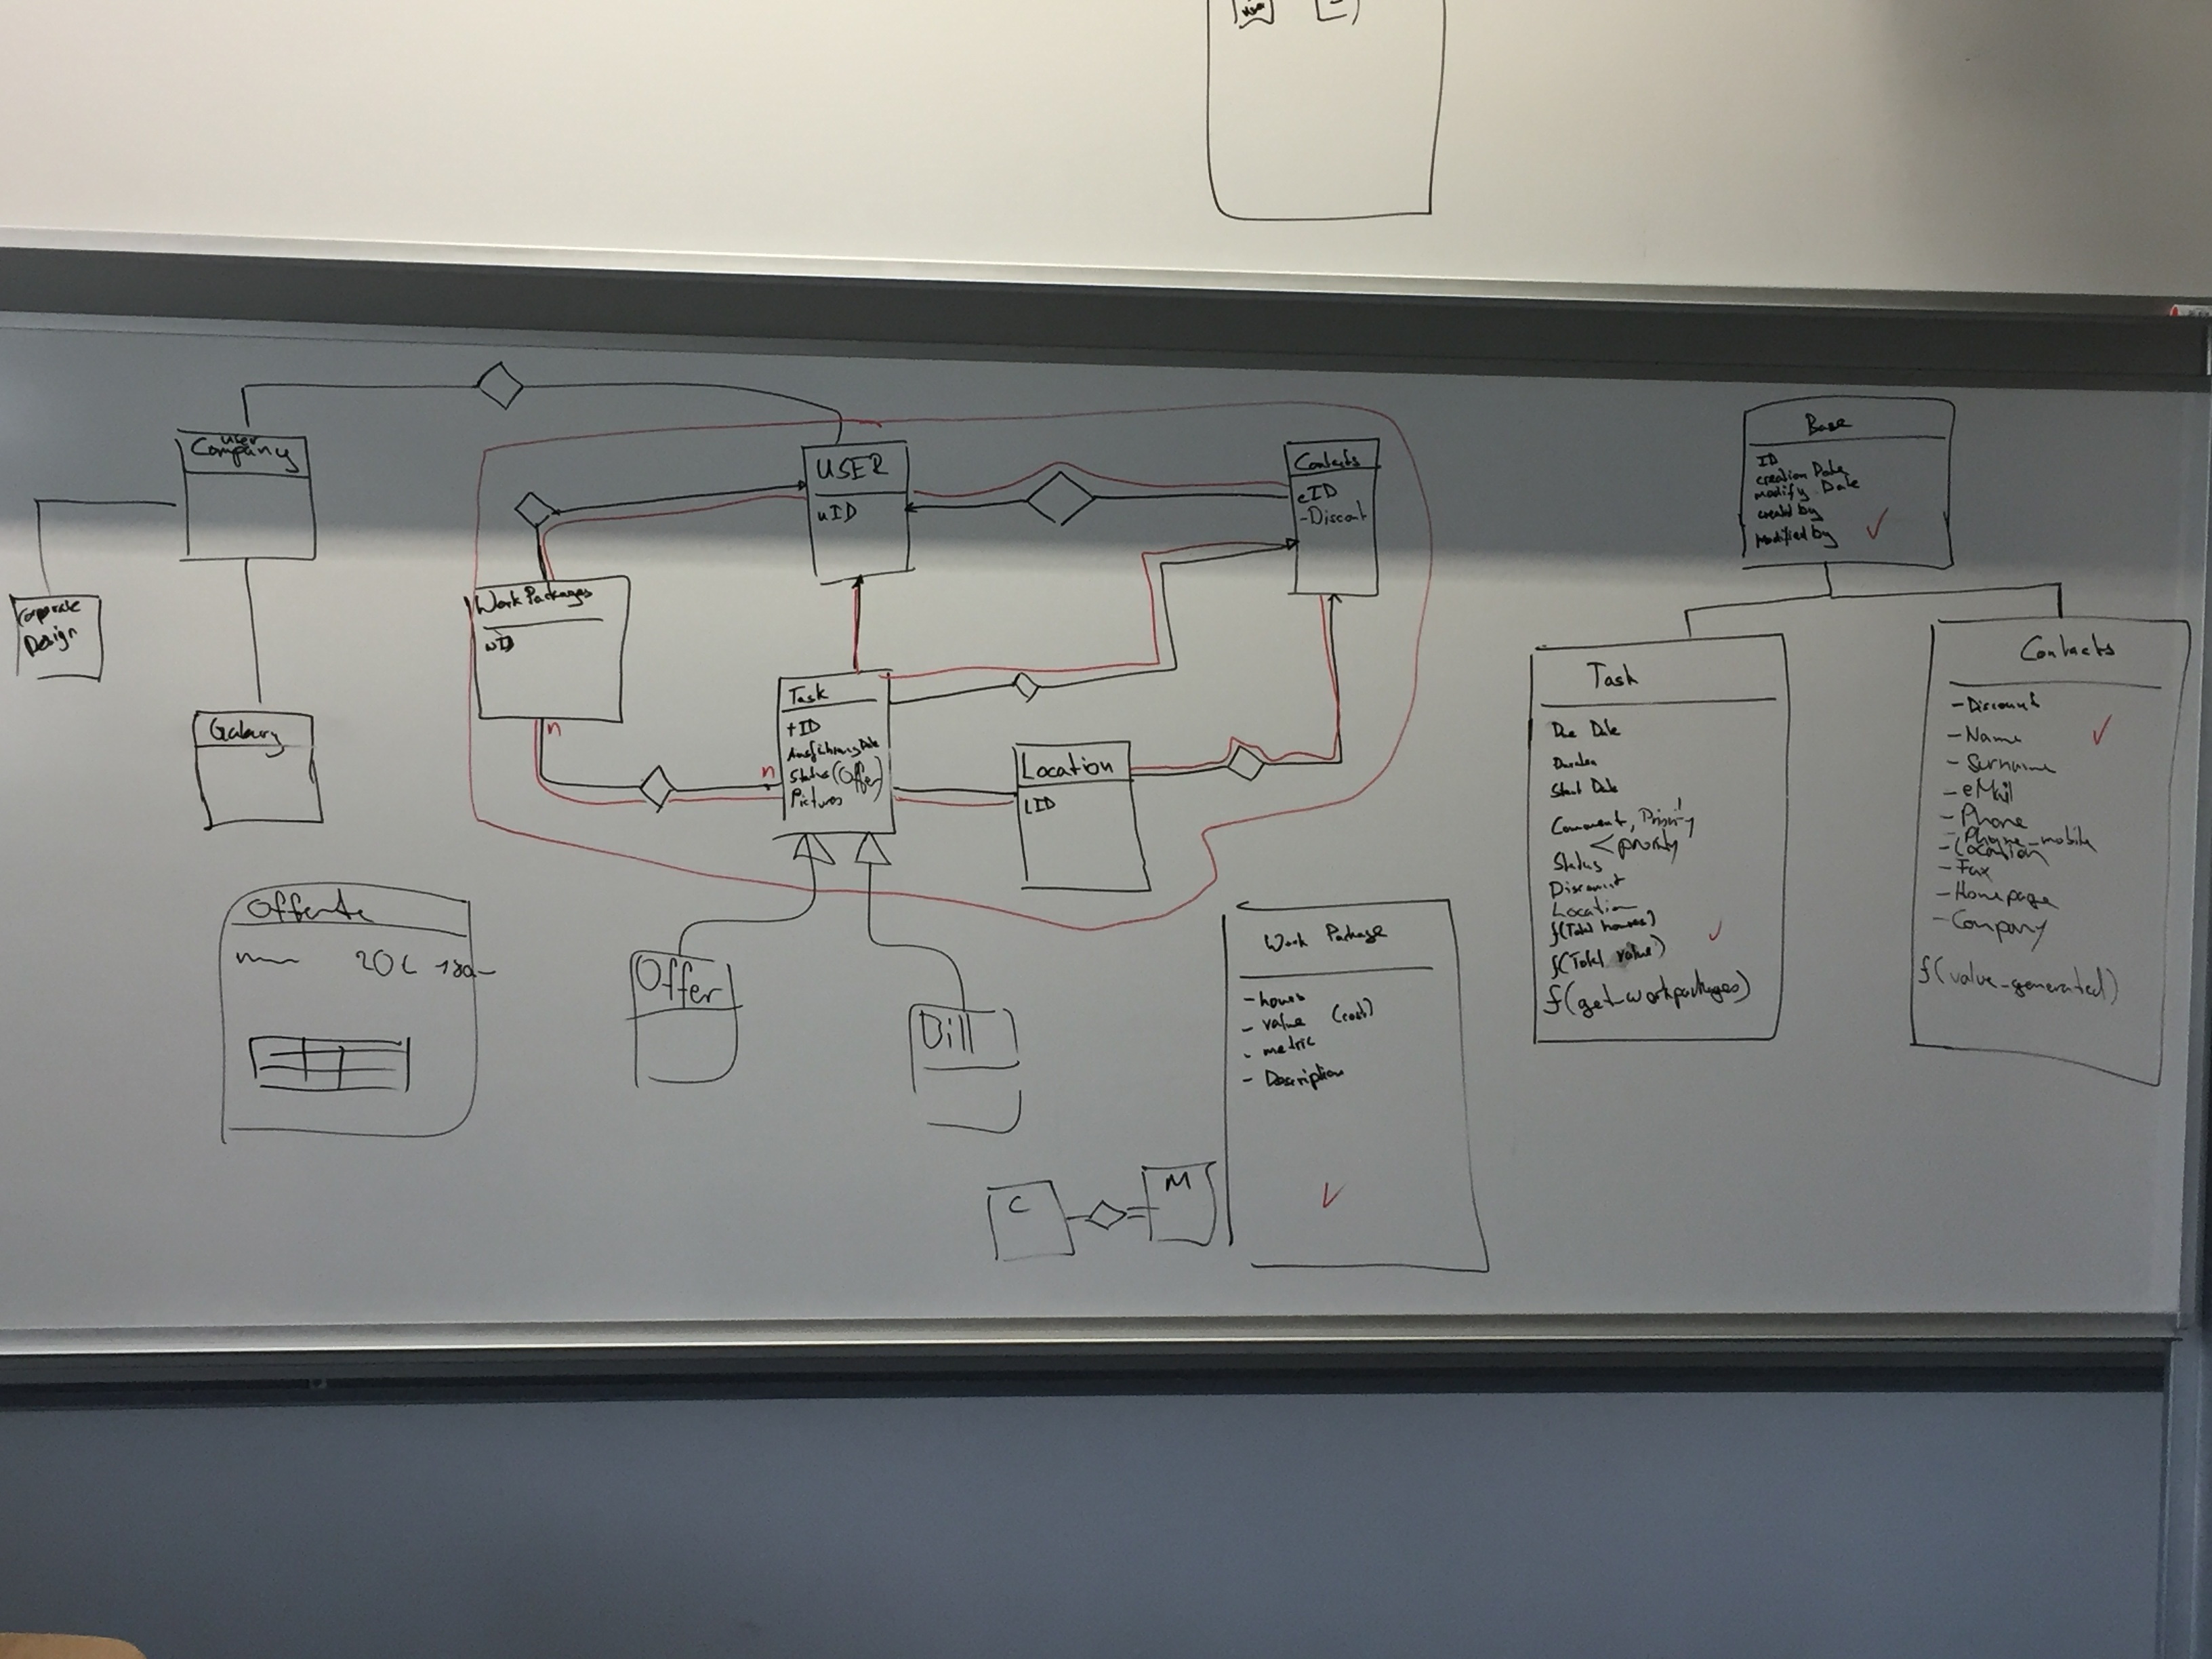 user
Company
Corporate
Design
Galary
Work Packages
wID
n
USER
uID
Contacts
cID
-Discont
Task
tID
Ausführung Date
Status (Offer)
Pictures
n
Location
LID
Offerte
20 L 180-
Offer
Bill
C
M
Work Package
- hours
- value (cost)
- metric
- Description
Base
ID
creation Date
modify Date
created by
modified by
Task
Due Date
Start Date
Comment, Priority
< priority
Status
Discount
Location
f(Total hours)
f(Total value)
f(get_workpackages)
Contacts
- Discount
- Name
- Surname
- eMail
- Phone
- Phone_mobile
- Location
- Fax
- Homepage
- Company
f(value_generated)